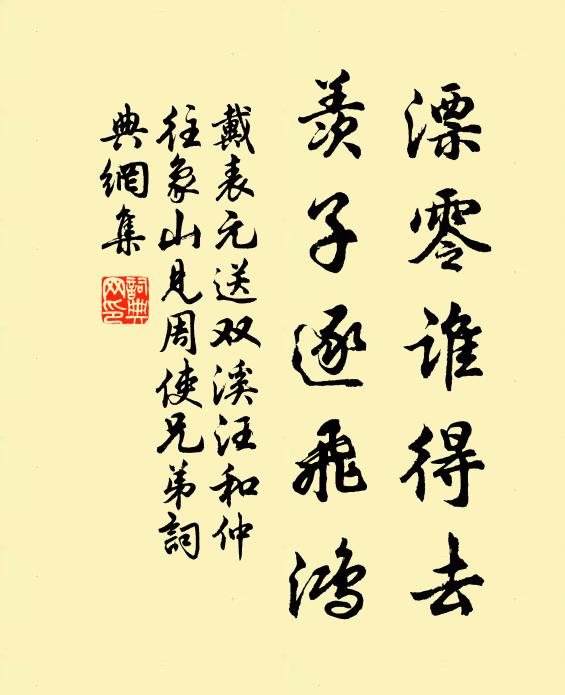 漂零谁得去
羡子逐飛鴻
戴表元送双溪汪和仲
往象山見周使兄弟詞
典網集
詞典网印